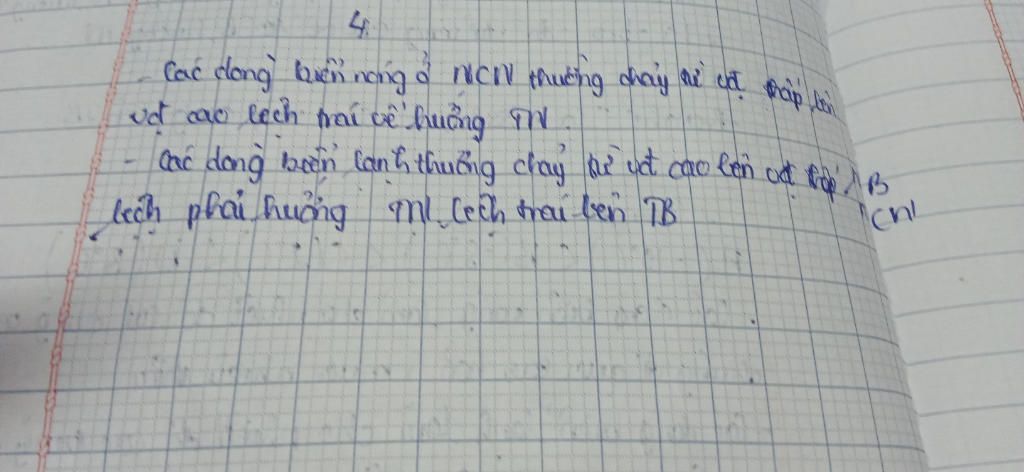 4.
- Các dòng biển nóng ở NCN thường chảy từ vđ thấp lên
vđ cao lệch trái về hướng TN.
- Các dòng biển lạnh thường chảy từ vđ cao lên vđ thấp B
lệch phải hướng lệch trái lên TB CN